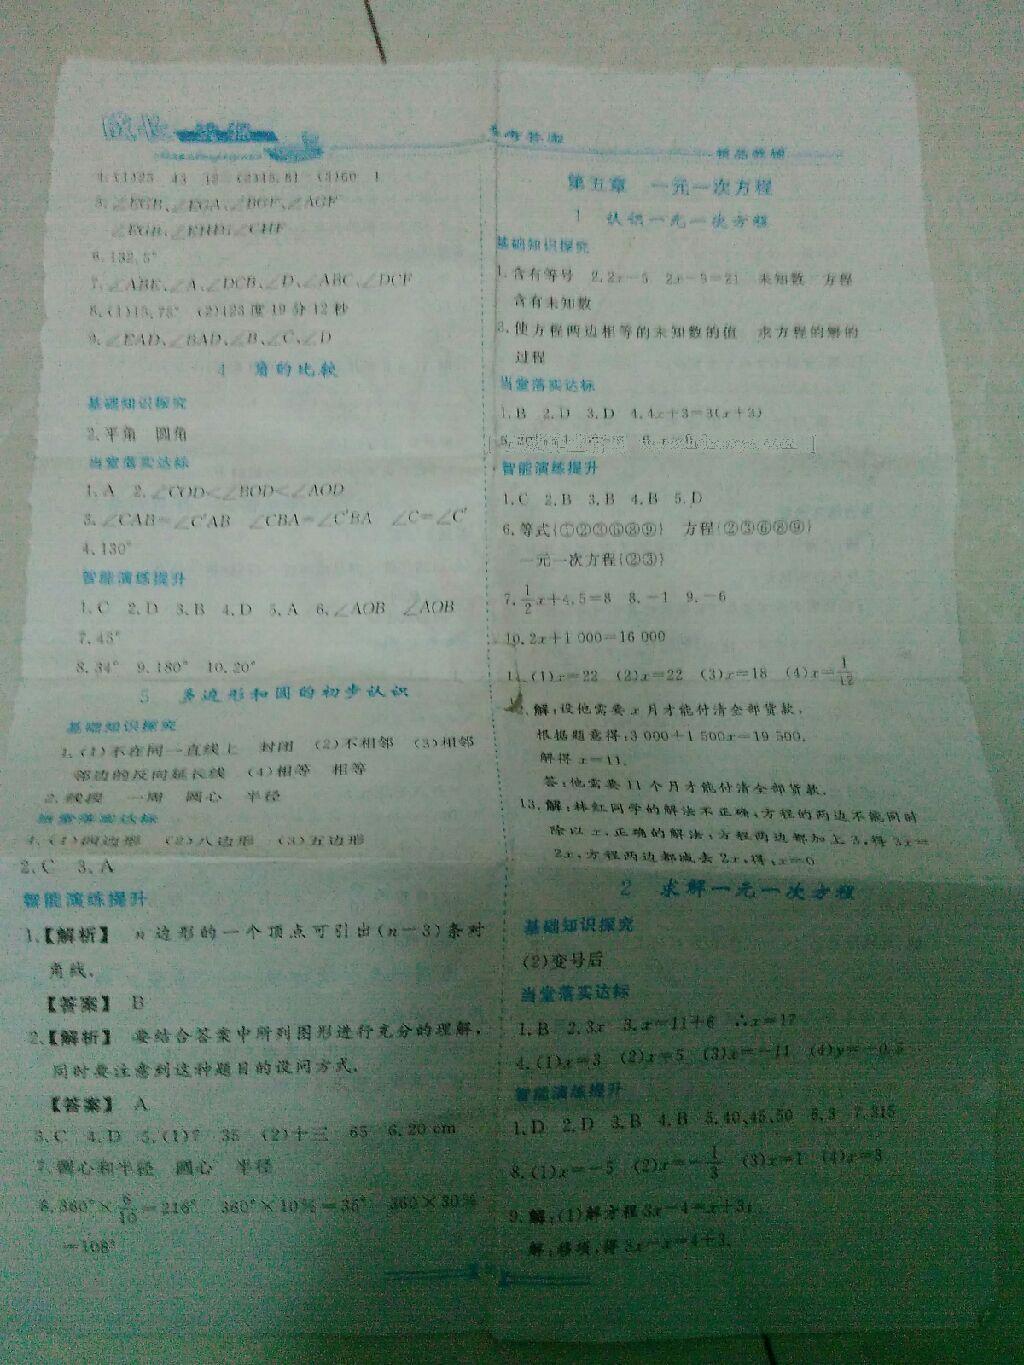 参考答案
精品教辅
4.(1)23 43 12 (2)15.61 (3)60 1
5.∠EGB、∠EGA、∠BGF、∠AGF
∠EGB、∠EHD;∠CHF
6.132.5°
7.∠ABE、∠A、∠DCB、∠D、∠ABC、∠DCF
8.(1)15,75° (2)123度19分12秒
9.∠EAD、∠BAD、∠B、∠C、∠D
4 角的比较
基础知识探究
2.平角 圆角
当堂落实达标
1.A 2.∠COD<∠BOD<∠AOD
3.∠CAB=∠C'AB ∠CBA=∠C'BA ∠C=∠C'
4.130°
智能演练提升
1.C 2.D 3.B 4.D 5.A 6.∠AOB ∠AOB
7.45°
8.34° 9.180° 10.20°
5 多边形和圆的初步认识
基础知识探究
1.(1)不在同一直线上 封闭 (2)不相邻 (3)相邻
邻边的反向延长线 (4)相等 相等
2.线段 一周 圆心 半径
当堂落实达标
1.(1)四边形 (2)八边形 (3)五边形
2.C 3.A
智能演练提升
1.【解析】 n边形的一个顶点可引出(n-3)条对
角线.
【答案】 B
2.【解析】 要结合答案中所列图形进行充分的理解,
同时要注意到这种题目的设问方式.
【答案】 A
3.C 4.D 5.(1)7 35 (2)十三 65 6.20 cm
7.圆心和半径 圆心 半径
8.360°×6/10=216° 360°×10%=35° 360×30%
=108°
第五章 一元一次方程
1 认识一元一次方程
基础知识探究
1.含有等号 2.2x-5 2x-5=21 未知数 方程
含有未知数
3.使方程两边相等的未知数的值 求方程的解的
过程
当堂落实达标
1.B 2.D 3.D 4.4x+3=3(x+3)
智能演练提升
1.C 2.B 3.B 4.B 5.D
6.等式{①②③⑥⑧⑨} 方程{②③⑥⑧⑨}
一元一次方程{②③}
7.1/2x+4.5=8 8.-1 9.-6
10.2x+1 000=16 000
11.(1)x=22 (2)x=22 (3)x=18 (4)x=1/12
12.解:设他需要x月才能付清全部货款.
根据题意得:3 000+1 500x=19 500.
解得x=11.
答:他需要11个月才能付清全部货款.
13.解:林红同学的解法不正确,方程的两边不能同时
除以x.正确的解法:方程两边都加上3,得3x=
2x,方程两边都减去2x,得,x=0
2 求解一元一次方程
基础知识探究
(2)变号后
当堂落实达标
1.B 2.3x 3.x=11+6 ∴x=17
4.(1)x=3 (2)x=5 (3)x=-11 (4)y=-0.5
智能演练提升
1.D 2.D 3.B 4.B 5.40,45,50 6.3 7.315
8.(1)x=-5 (2)x=-1/3 (3)x=1 (4)x=3
9.解:(1)解方程3x-4=x+3;
解:移项,得3x-x=4+3.